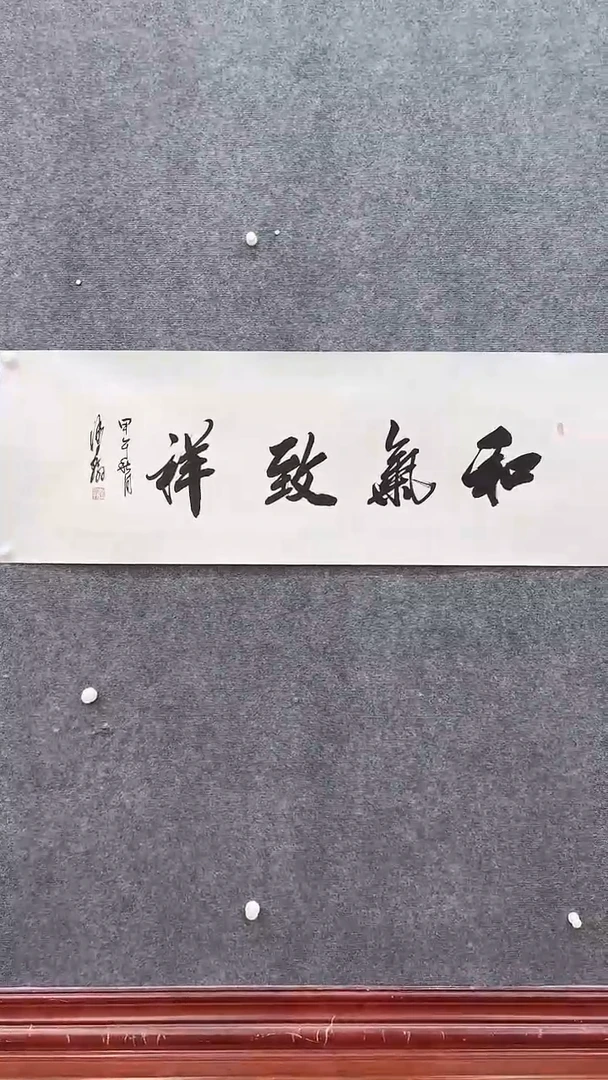 和氣致祥
甲午秋月